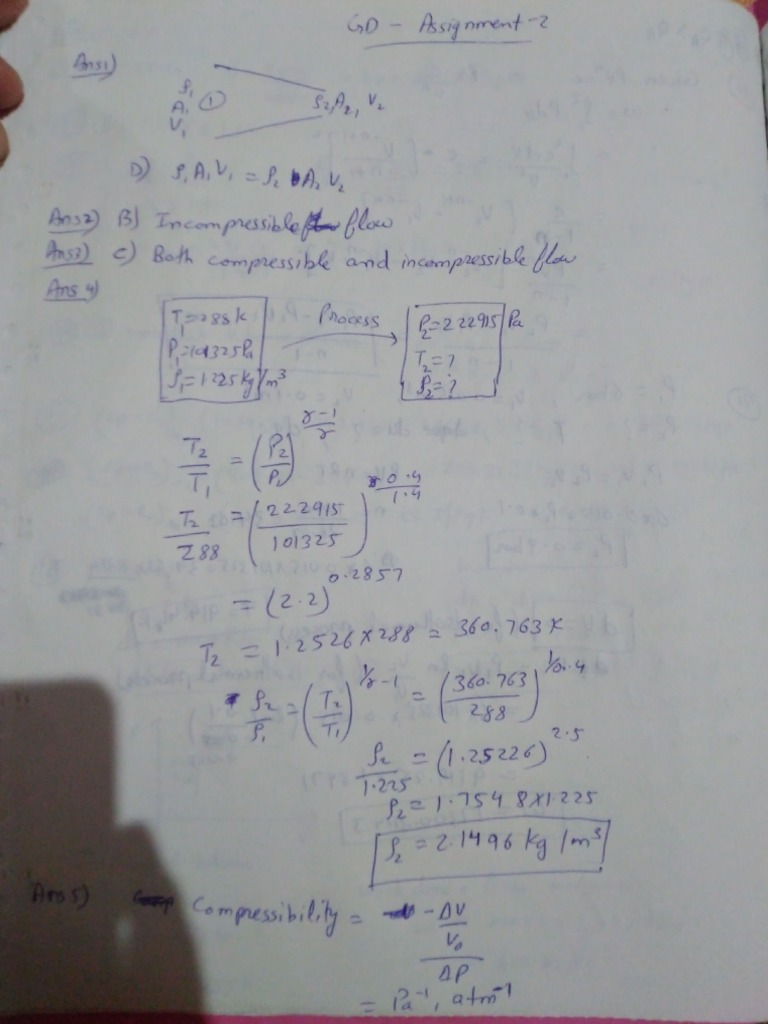 GD - Assignment-2
Ans1)
ρ1
A1 ① ρ2, A2, V2
V1
D) ρ1 A1 V1 = ρ2 A2 V2
Ans2) B) Incompressible flow
Ans3) C) Both compressible and incompressible flow
Ans 4)
T1=288k Process P2=222915 Pa
P1=101325Pa T2=?
ρ1=1.225kg/m³ ρ2=?
T2/T1 = (P2/P1)^(γ-1/γ)
T2/288 = (222915/101325)^(0.4/1.4)
= (2.2)^0.2857
T2 = 1.2526×288 = 360.763K
ρ2/ρ1 = (T2/T1)^(1/γ-1) = (360.763/288)^(1/0.4)
ρ2/1.225 = (1.25226)^2.5
ρ2 = 1.7548×1.225
ρ2 = 2.1496 kg/m³
Ans5) Compressibility = (-ΔV/V0)/ΔP
= Pa⁻¹, atm⁻¹